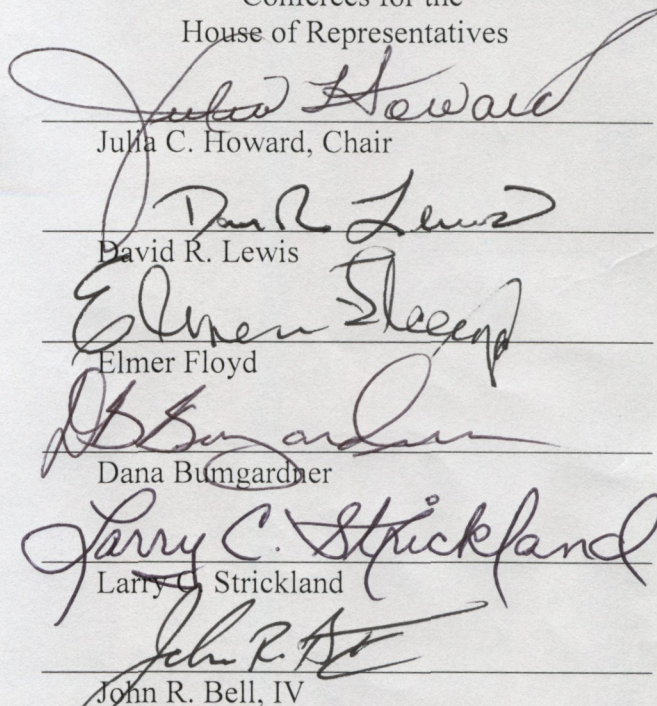 Conferees for the
House of Representatives
Julia Howard
Julia C. Howard, Chair
David R. Lewis
Elmer Floyd
Dana Bumgardner
Larry C. Strickland
Larry C. Strickland
John R.
John R. Bell, IV